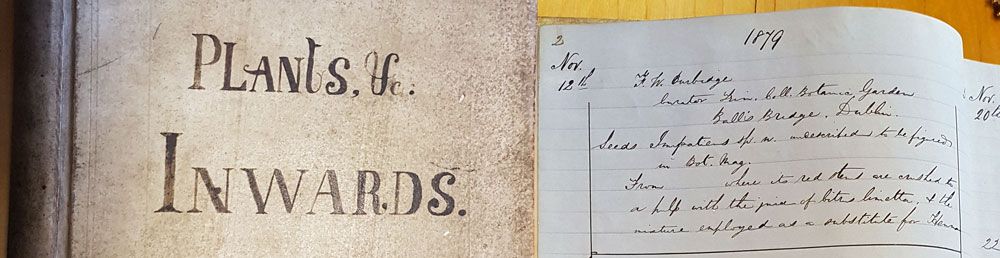 PLANTS, &c.
INWARDS.
2
1879
Nov.
12th
F. W. Burbidge
Curator Trin. Coll. Botanic Garden
Balls Bridge. Dublin.
Seeds Impatiens sp. n. undescribed to be figured
in Bot. Mag.
From where its red stems are crushed to
a pulp with the juice of Citrus limetta, & the
mixture employed as a substitute for Henna
Nov.
20th
22